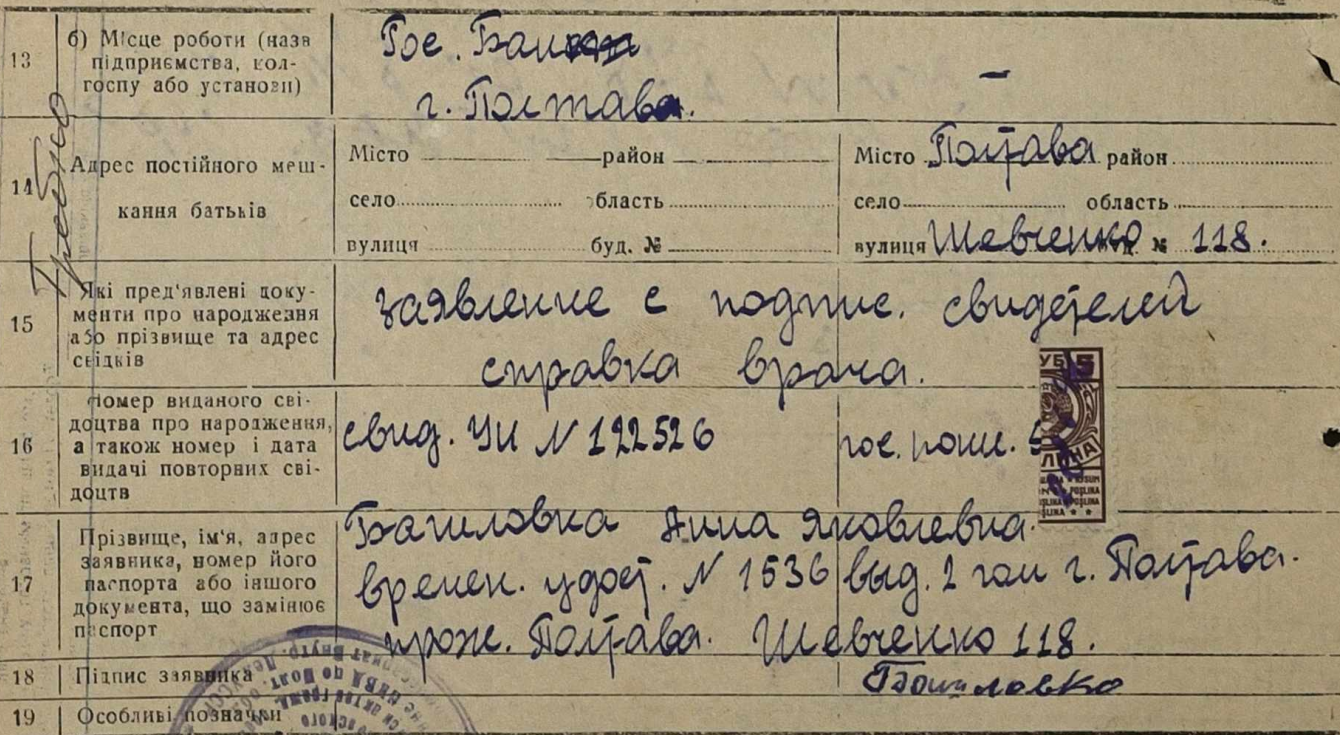 13 б) Місце роботи (назв
підприємства, кол-
госпу або установи)
Гос. Банк
г. Полтава.
—
14 Адрес постійного меш-
кання батьків
Місто район
село область
вулиця буд. №
Місто Полтава район
село область
вулиця Шевченко № 118.
15 Які пред'явлені доку-
менти про народження
або прізвище та адрес
свідків
заявление с подпис. свидетелей
справка врача.
16 Номер виданого сві-
доцтва про народження,
а також номер і дата
видачі повторних сві-
доцтв
свид. УИ N 122526
гос. пошл. 5
УБ 5
ЛИНА
17 Прізвище, ім'я, адрес
заявника, номер його
паспорта або іншого
документа, що замінює
паспорт
Анна Яковлевна.
времен. удост. N 1536 выд. 2 гом г. Полтава.
прож. Полтава. Шевченко 118.
18 Підпис заявника
19 Особливі позначки